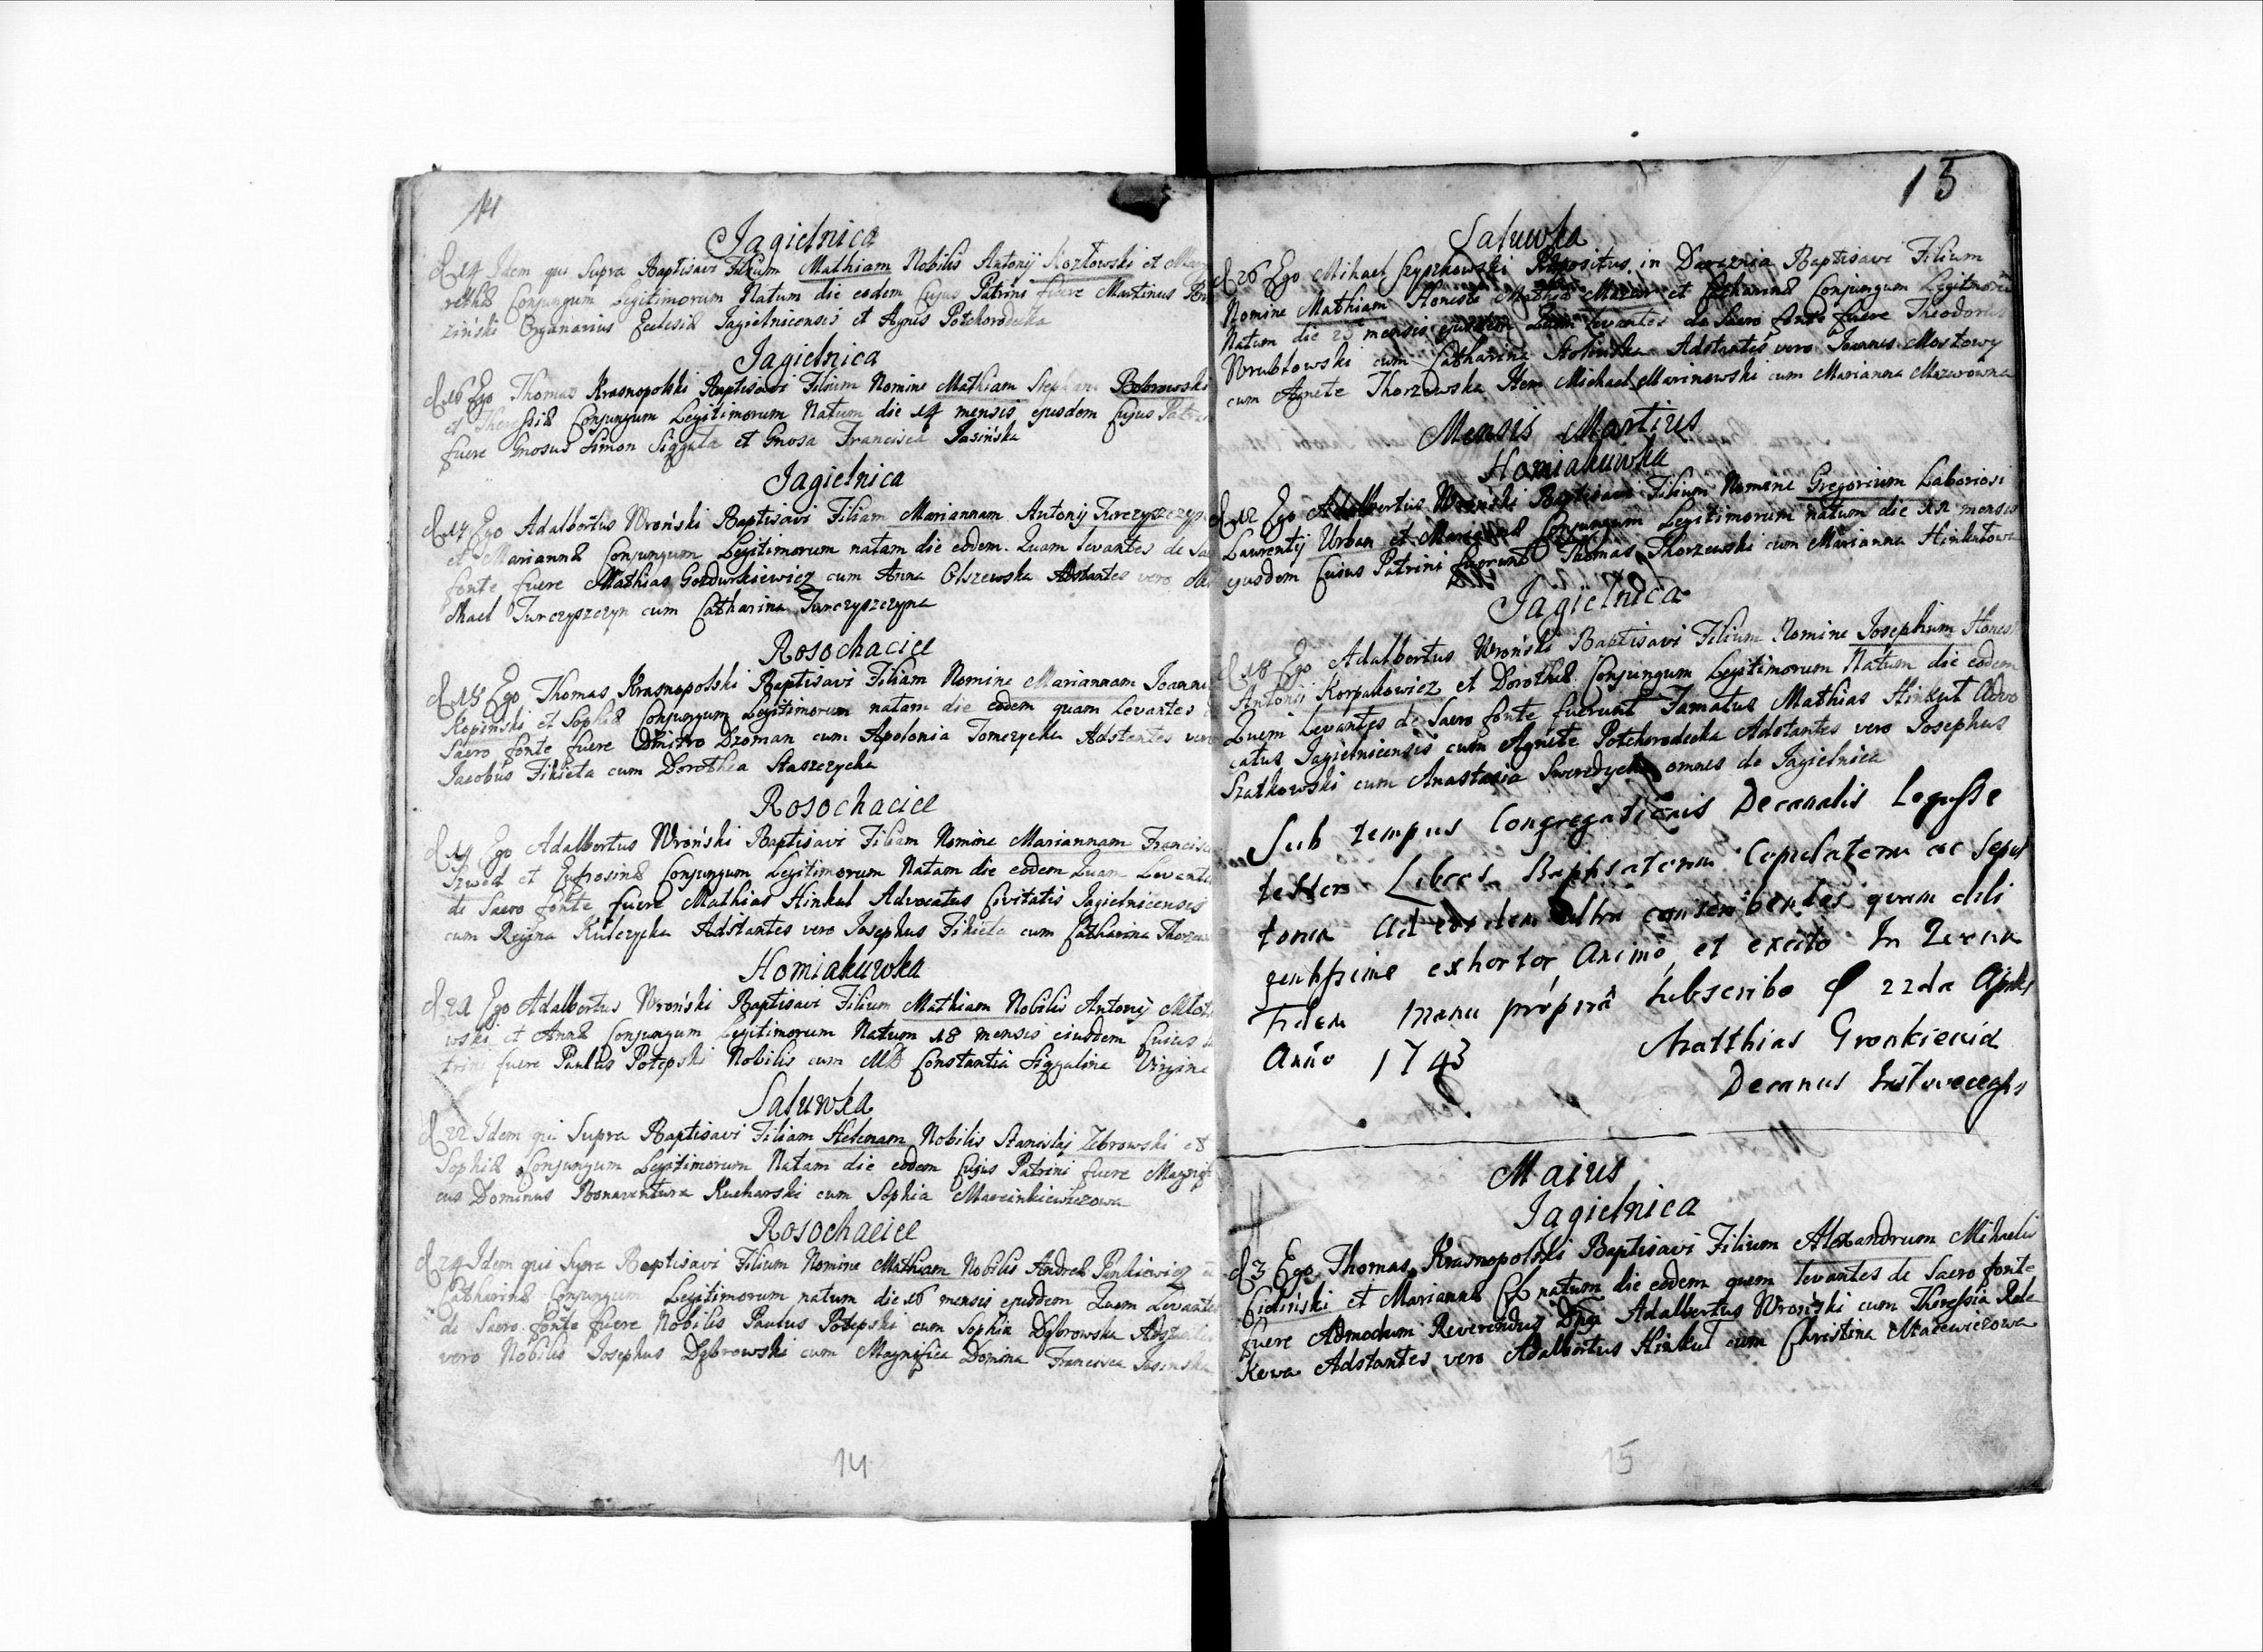 14
Jagielnica
d 14 Idem qui supra Baptisavi Filium Mathiam Nobilis Antonÿ Kozłowski et Mar
rethæ Conjungum Legitimorum Natum die eodem Cujus Patrini fuere Martinus
ziński Organarius Ecclesiæ Jagielnicensis et Agnis Potchorodecka
Jagielnica
d 16 Ego Thomas Krasnopolski Baptisavi Filium Nomine Mathiam Stephani Bobrowski
et Theressiæ Conjungum Legitimorum Natum die 14 mensis ejusdem Cujus Patrin
fuere Gnosus Simon Siggula et Gnosa Francisca Jasińska
Jagielnica
d 17 Ego Adalbertus Wroński Baptisavi Filiam Mariannam Antonij Turczyszczyn
et Mariannæ Conjungum Legitimorum natam die eodem. Quam levantes de Sa
fonte fuere Mathias Gozdurkiewicz cum Anna Olszewska Adstantes vero
chael Turczyszczyn cum Catharina Turczyszczyna
Rosochacice
d 18 Ego Thomas Krasnopolski Baptisavi Filiam Nomine Mariannam Joannis
Kopinski et Sophiæ Conjungum Legitimorum natam die eodem quam Levantes
Sacro fonte fuere Dmitro Dzoman cum Apolonia Tomczycka Adstantes vero
Jacobus Fikieta cum Dorothea Staszczycka
Rosochacice
d 19 Ego Adalbertus Wroński Baptisavi Filiam Nomine Mariannam Francisci
Szwed et Eufrosinæ Conjungum Legitimorum Natam die eodem Quam Levante
de Sacro fonte fuere Mathias Hinkul Advocatus Civitatis Jagielnicensis
cum Regina Kulczycka Adstantes vero Josephus Fikieta cum Catharina
Homiakuwka
d 21 Ego Adalbertus Wroński Baptisavi Filium Mathiam Nobilis Antonÿ
wski et Annæ Conjungum Legitimorum Natum 18 mensis eiusdem Cuius
trini fuere Paulus Potepski Nobilis cum Constantia Siggulina Virgine
Saluwka
d 22 Idem qui Supra Baptisavi Filiam Helenam Nobilis Stanislaj Zebrowski et
Sophiæ Conjungum Legitimorum Natam die eodem Cujus Patrini fuere Magnifi
cus Dominus Bonaventura Kucharski cum Sophia Marcinkiewiczowa
Rosochacice
d 24 Idem qui Supra Baptisavi Filium Nomine Mathiam Nobilis Andreæ Pinkiewicz
Catharinæ Conjungum Legitimorum natum die 16 mensis ejusdem Quem Levantes
de Sacro fonte fuere Nobilis Paulus Potepski cum Sophia Dąbrowska Adstantes
vero Nobilis Josephus Dąbrowski cum Magnifica Domina Francisca Jasinska
14
15
Saluwka
d 26 Ego Mihael Szyszkowski Præpositus in Baptisavi Filium
Nomine Mathiam Honesti Mazur et Catharinæ Conjungum Legitimorum
Natum die 25 mensis ejusdem Quem levantes de Sacro fonte fuere Theodorus
Wrublowski cum Catharina Adstantes vero Joannes Mostowy
cum Agnete Thorzewska Item Michael Marinowski cum Marianna Mazurowna
Mensis Martius
Homiakuwka
d 12 Ego Adalbertus Wroński Baptisavi Filium Nomine Gregorium Laboriosi
Lawrentij Urban et Mariannæ Conjungum Legitimorum natum die 12 mensis
ejusdem Cuius Patrini fuerunt Thomas Thorzewski cum Marianna Hinkulowa
Jagielnica
d 18 Ego Adalbertus Wroński Baptisavi Filium Nomine Josephum Honesti
Antoni Korpakowicz et Dorotheæ Conjungum Legitimorum Natum die eodem
Quem Levantes de Sacro fonte fuerunt Famatus Mathias Hinkul Advo
catus Jagielnicensis cum Agnete Potchorodecka Adstantes vero Josephus
Szatkowski cum Anastasia omnes de Jagielnica
Sub tempus Congregationis Decanalis Legisse
testor Libros Baptisatorum Copulatorum ac Sepul
torum ad eosdem ultra conscribendos quam dili
gentissime exhortor animo, et excito In Quorum
Fidem manu propriâ subscribo d 22da Aprilis
Anño 1743
Matthias Gronkiewicz
Decanus
Maius
Jagielnica
d 3 Ego Thomas Krasnopolski Baptisavi Filium Alexandrum Mihaelis
Cieliński et Mariannæ natum die eodem quem levantes de Sacro fonte
fuere Admodum Reverendus Dnus Adalbertus Wroński cum Theressia Role
kowa Adstantes vero Adalbertus Hinkul cum Christina Macewiczowa
15